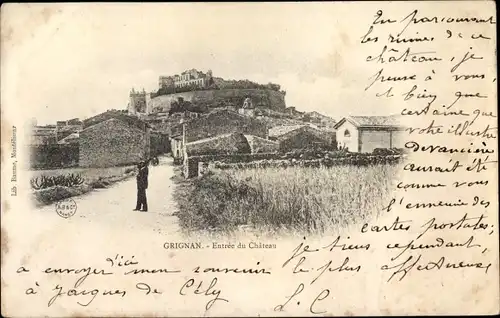 En parcourant
les ruines de ce
château, je
pense à vous
et bien que
certaine que
votre illustre
devancière
aurait été
comme vous
l'ennemie des
cartes postales,
je tiens cependant
à envoyer d'ici mon souvenir le plus affectueux
à Jacques de Cély, L. C.
GRIGNAN. - Entrée du Château
Lib. Montélimar